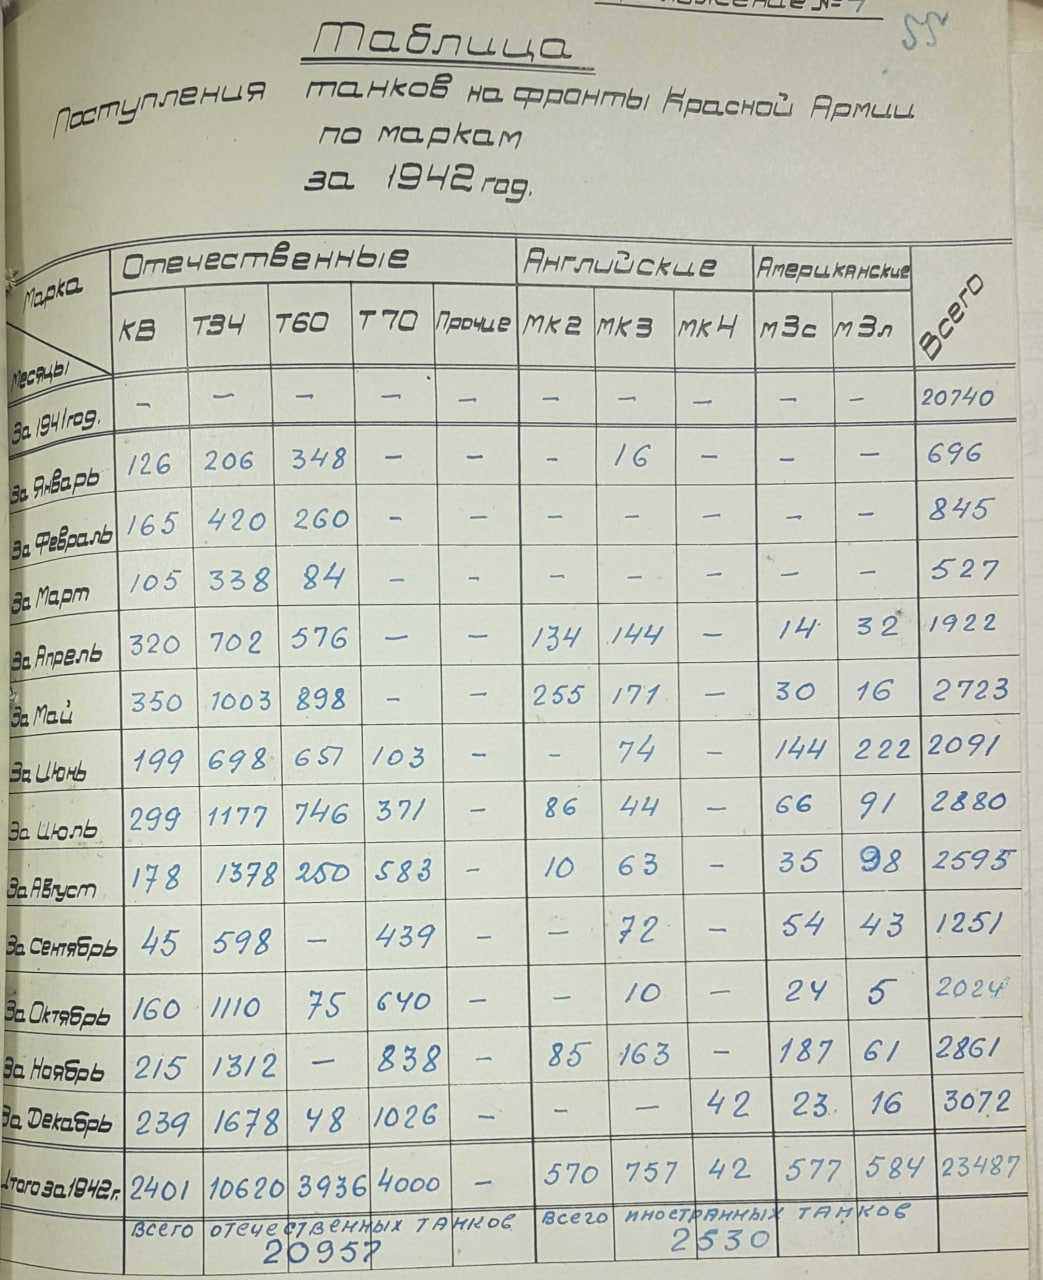 № 7
55
Таблица
Поступления танков на фронты Красной Армии
по маркам
за 1942 год.
Марка Отечественные Английские Американские Всего
Месяцы КВ Т34 Т60 Т70 Прочие МК2 МК3 МК4 М3с М3л
За 1941 год. - - - - - - - - - - 20740
За Январь 126 206 348 - - - 16 - - - 696
За Февраль 165 420 260 - - - - - - - 845
За Март 105 338 84 - - - - - - - 527
За Апрель 320 702 576 - - 134 144 - 14 32 1922
За Май 350 1003 898 - - 255 171 - 30 16 2723
За Июнь 199 698 651 103 - - 74 - 144 222 2091
За Июль 299 1177 746 371 - 86 44 - 66 91 2880
За Август 178 1378 250 583 - 10 63 - 35 98 2595
За Сентябрь 45 598 - 439 - - 72 - 54 43 1251
За Октябрь 160 1110 75 640 - - 10 - 24 5 2024
За Ноябрь 215 1312 - 838 - 85 163 - 187 61 2861
За Декабрь 239 1678 48 1026 - - - 42 23. 16 3072
Итого за 1942 г. 2401 10620 3936 4000 - 570 757 42 577 584 23487
Всего отечественных танков Всего иностранных танков
20957 2530